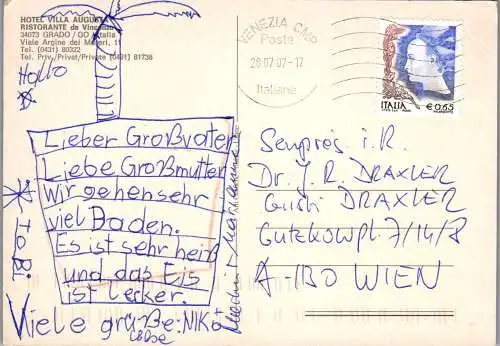 HOTEL VILLA AUGUSTA
RISTORANTE da Vincenzo
34073 GRADO / GO Italia
Viale Argine dei Moreri, 11
Tel. (0431) 80322
Tel. Priv./Privat/Private (0431) 81738
Hallo
Lieber Großvater
Liebe Großmutter
Wir gehen sehr
viel Baden.
Es ist sehr heiß
und das Eis
ist lecker.
Viele grüße: NIKO +
TOBI
VENEZIA CMP
Poste
20 07 07 - 17
Italiane
ITALIA € 0,65
Senpräs i. R.
Dr. J. R. DRAXLER
Gusti DRAXLER
Gutzkowpl. 7/14/8
A-1130 WIEN